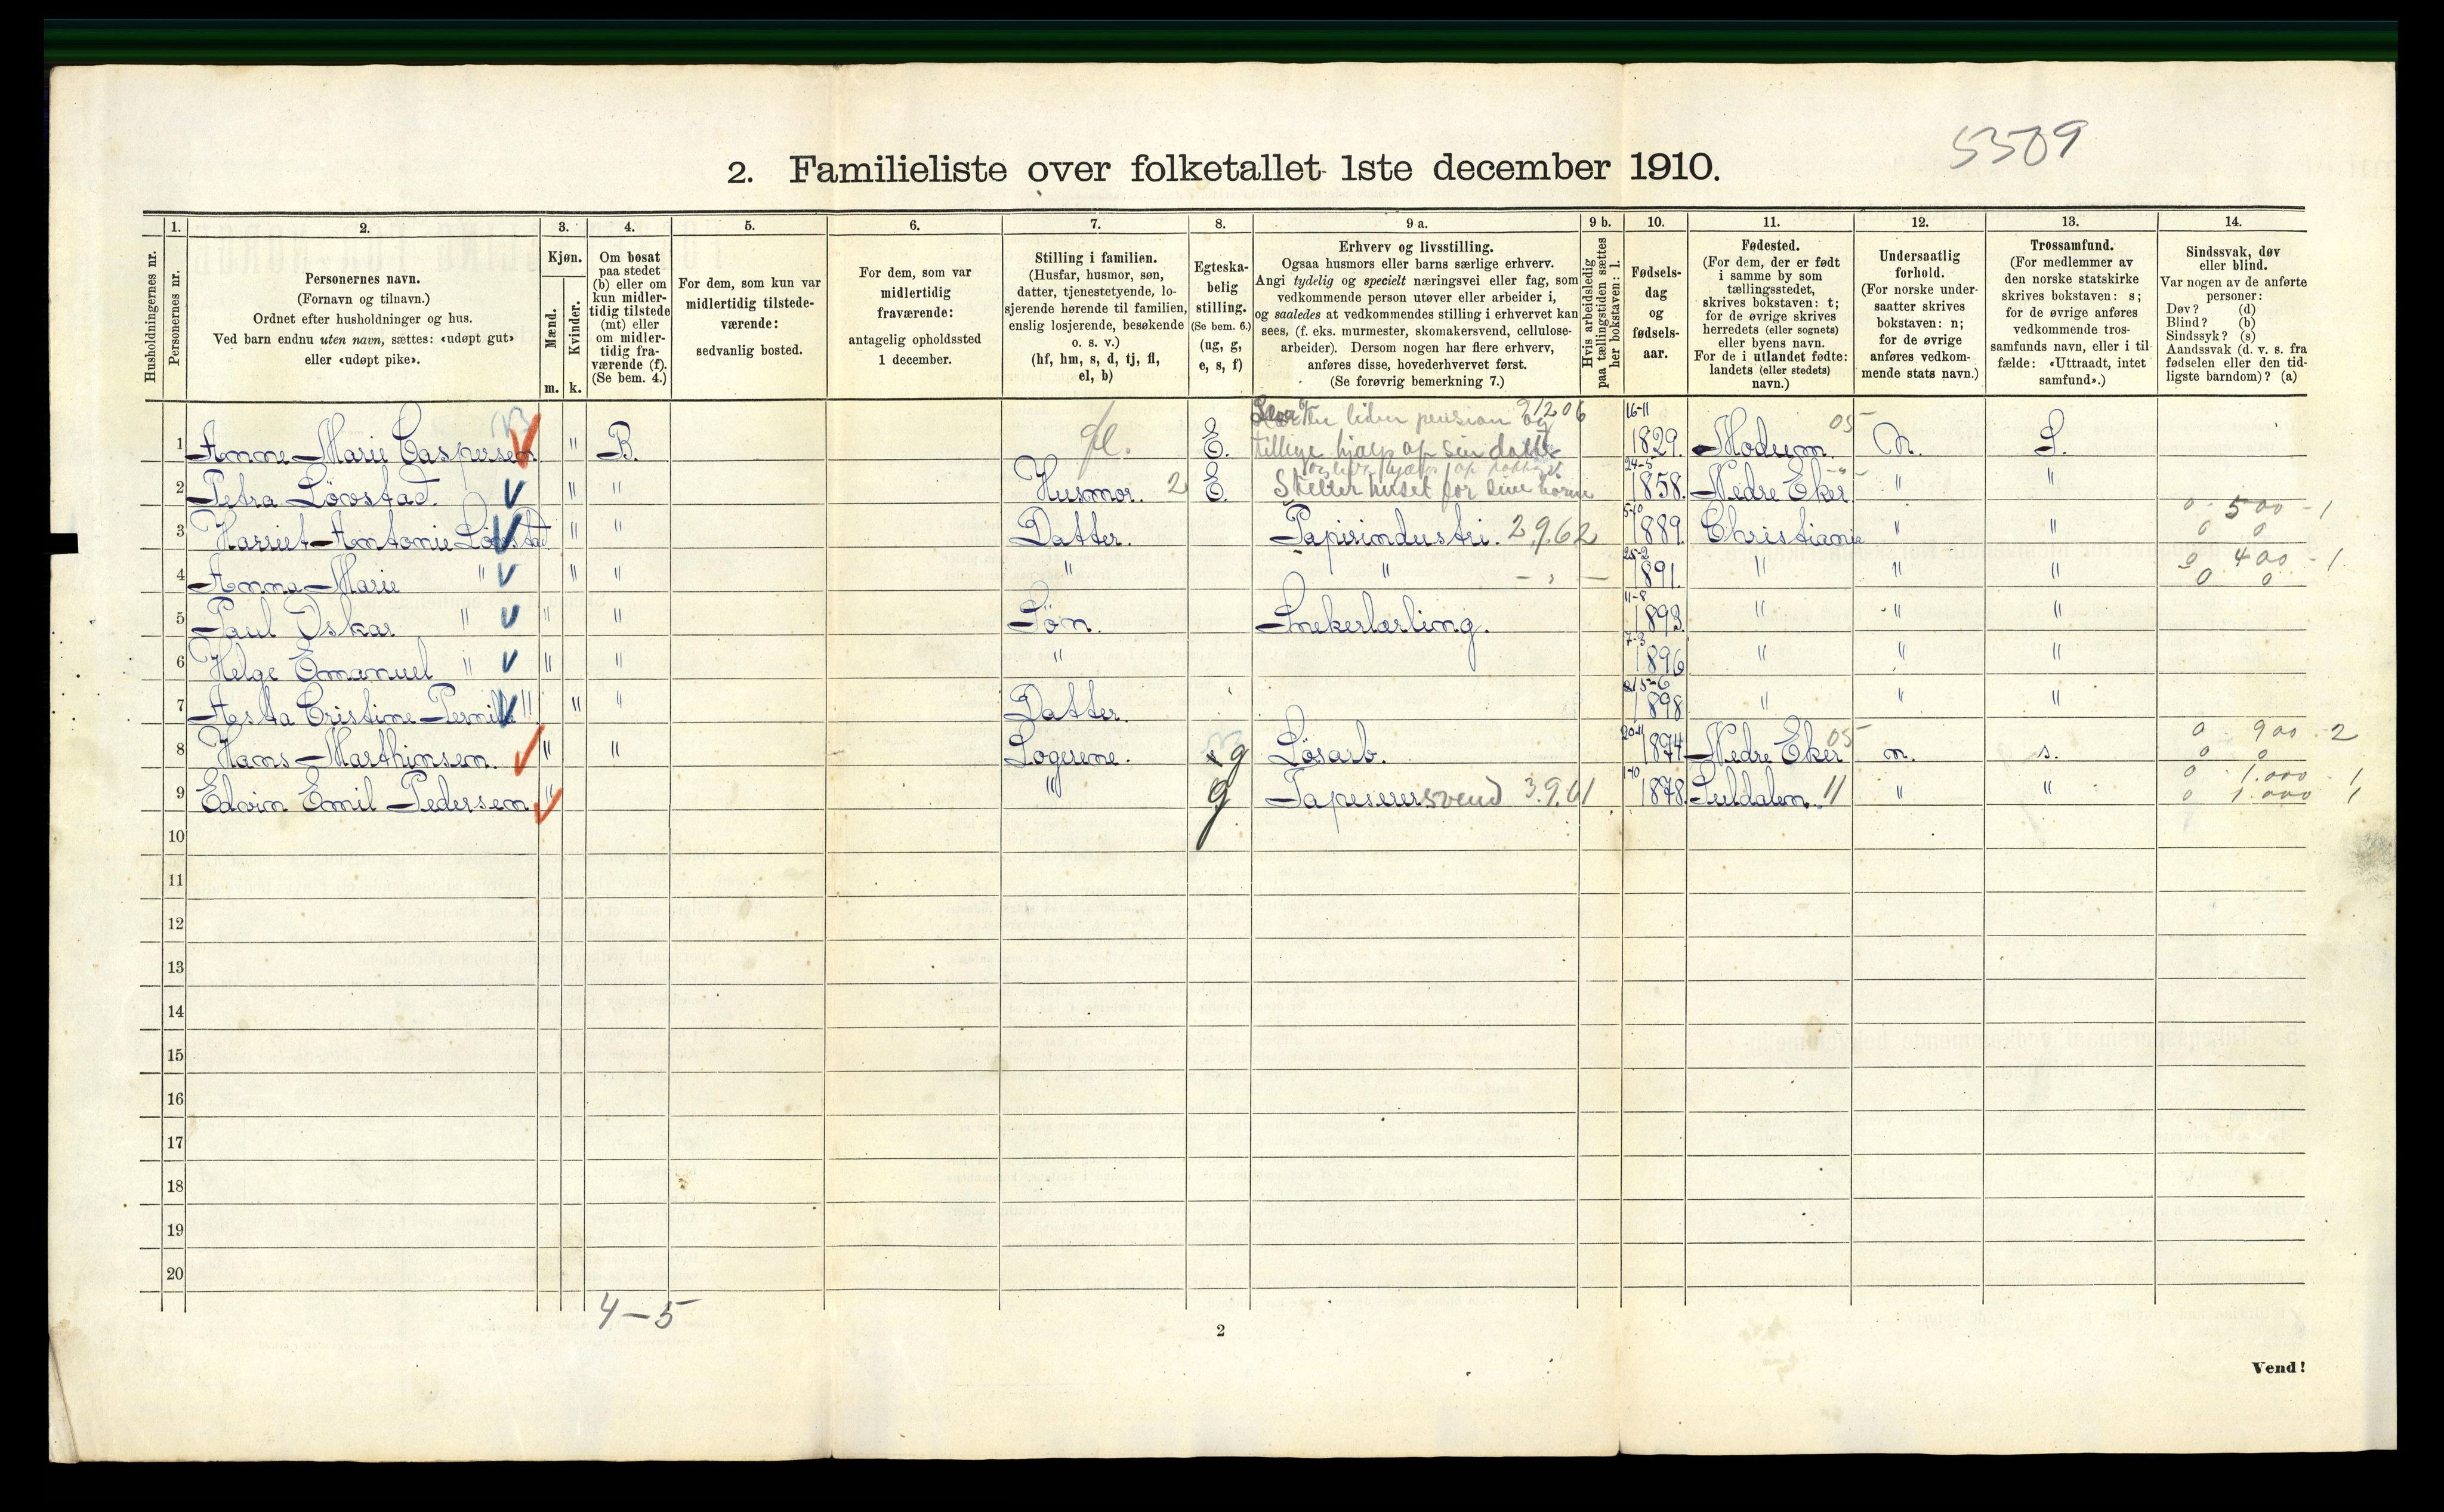 5509
2. Familieliste over folketallet 1ste december 1910.
Husholdningernes nr.
1. Personernes nr.
2. Personernes navn.
(Fornavn og tilnavn.)
Ordnet efter husholdninger og hus.
Ved barn endnu uten navn, sættes: «udøpt gut»
eller «udøpt pike».
3. Kjøn.
Mænd. m.
Kvinder. k.
4. Om bosat
paa stedet
(b) eller om
kun midler-
tidig tilstede
(mt) eller
om midler-
tidig fra-
værende (f).
(Se bem. 4.)
5. For dem, som kun var
midlertidig tilstede-
værende:
sedvanlig bosted.
6. For dem, som var
midlertidig
fraværende:
antagelig opholdssted
1 december.
7. Stilling i familien.
(Husfar, husmor, søn,
datter, tjenestetyende, lo-
sjerende hørende til familien,
enslig losjerende, besøkende
o. s. v.)
(hf, hm, s, d, tj, fl,
el, b)
8. Egteska-
belig
stilling.
(Se bem. 6.)
(ug, g,
e, s, f)
9 a. Erhverv og livsstilling.
Ogsaa husmors eller barns særlige erhverv.
Angi tydelig og specielt næringsvei eller fag, som
vedkommende person utøver eller arbeider i,
og saaledes at vedkommendes stilling i erhvervet kan
sees, (f. eks. murmester, skomakersvend, cellulose-
arbeider). Dersom nogen har flere erhverv,
anføres disse, hovederhvervet først.
(Se forøvrig bemerkning 7.)
9 b. Hvis arbeidsledig
paa tællingstiden sættes
her bokstaven: l.
10. Fødsels-
dag
og
fødsels-
aar.
11. Fødested.
(For dem, der er født
i samme by som
tællingsstedet,
skrives bokstaven: t;
for de øvrige skrives
herredets (eller sognets)
eller byens navn.
For de i utlandet fødte:
landets (eller stedets)
navn.)
12. Undersaatlig
forhold.
(For norske under-
saatter skrives
bokstaven: n;
for de øvrige
anføres vedkom-
mende stats navn.)
13. Trossamfund.
(For medlemmer av
den norske statskirke
skrives bokstaven: s;
for de øvrige anføres
vedkommende tros-
samfunds navn, eller i til-
fælde: «Uttraadt, intet
samfund».)
14. Sindssvak, døv
eller blind.
Var nogen av de anførte
personer:
Døv? (d)
Blind? (b)
Sindssyk? (s)
Aandssvak (d. v. s. fra
fødselen eller den tid-
ligste barndom)? (a)
liden pension og 91206
1 Anne Marie Caspersen " B. fl. E. tillige hjælp af sin datter 16-11 1829. Modum. 05 N. S.
2 Petra Lövstad. " " Husmor. 2 E. Steller huset for sine börn 24-5 1858. Nedre Eker " "
3 Harriet Antonie Lövstad " " Datter. Papirindustri. 2.9.62 5-10 1889. Christiania " " 0 500 - 1
0 0
4 Anna Marie " " " " " 25-2 1891. " " " 0 400 - 1
0 0
5 Paul Oskar " " " Sön. Snekerlærling. 11-8 1893. " " "
6 Helge Emanuel " " " " 7-3 1896 " " "
7 Asta Cristine Pernille " " " Datter. 1898 " " "
8 Hans Marthinsen. " " Logerene. g Lösarb. 20-11 1874 Nedre Eker 05 n. s. 0 900 - 2
0 0
9 Edvin Emil Pedersen " " g Tapeserersvend 3.9.61 1-10 1878. Suldalen. 11 " " 0 1.000 - 1
0 1.000 1
10
11
12
13
14
15
16
17
18
19
20
4-5
2
Vend!